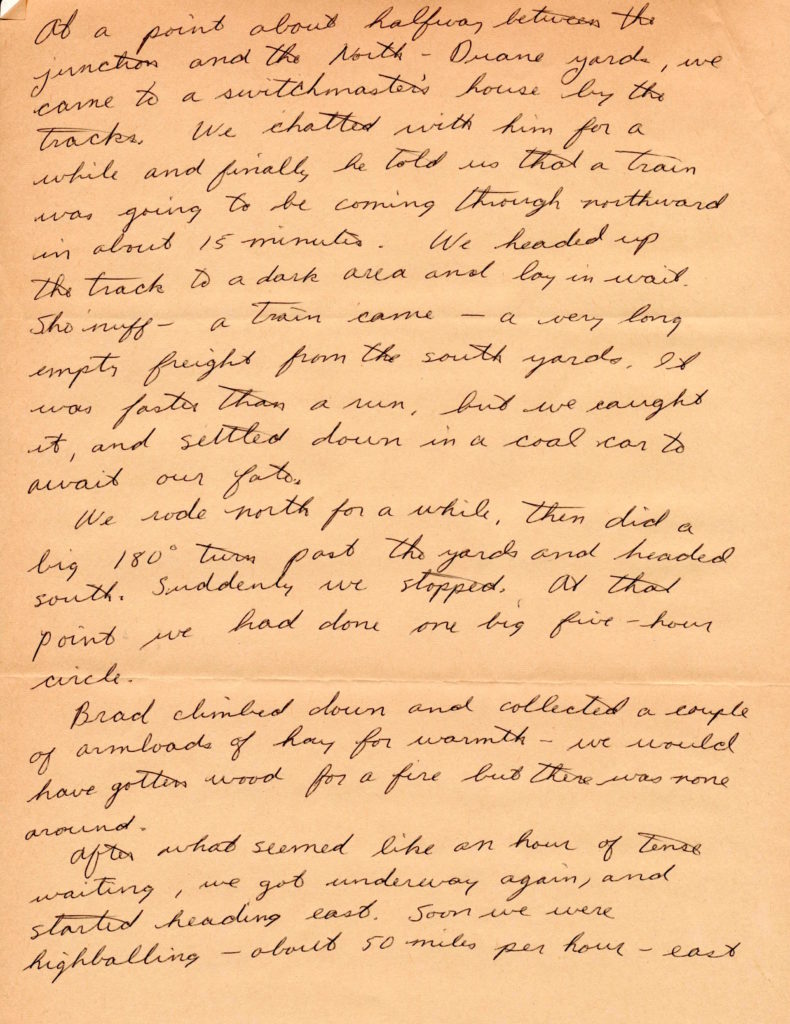 At a point about halfway between the
junction and the North - Duane yards, we
came to a switchmaster's house by the
tracks. We chatted with him for a
while and finally he told us that a train
was going to be coming through northward
in about 15 minutes. We headed up
the track to a dark area and lay in wait.
Sho'nuff - a train came - a very long
empty freight from the south yards. It
was faster than a run, but we caught
it, and settled down in a coal car to
await our fate.
We rode north for a while, then did a
big 180° turn past the yards and headed
south. Suddenly we stopped. At that
point we had done one big five-hour
circle.
Brad climbed down and collected a couple
of armloads of hay for warmth - we would
have gotten wood for a fire but there was none
around.
After what seemed like an hour of tense
waiting, we got underway again, and
started heading east. Soon we were
highballing - about 50 miles per hour - east